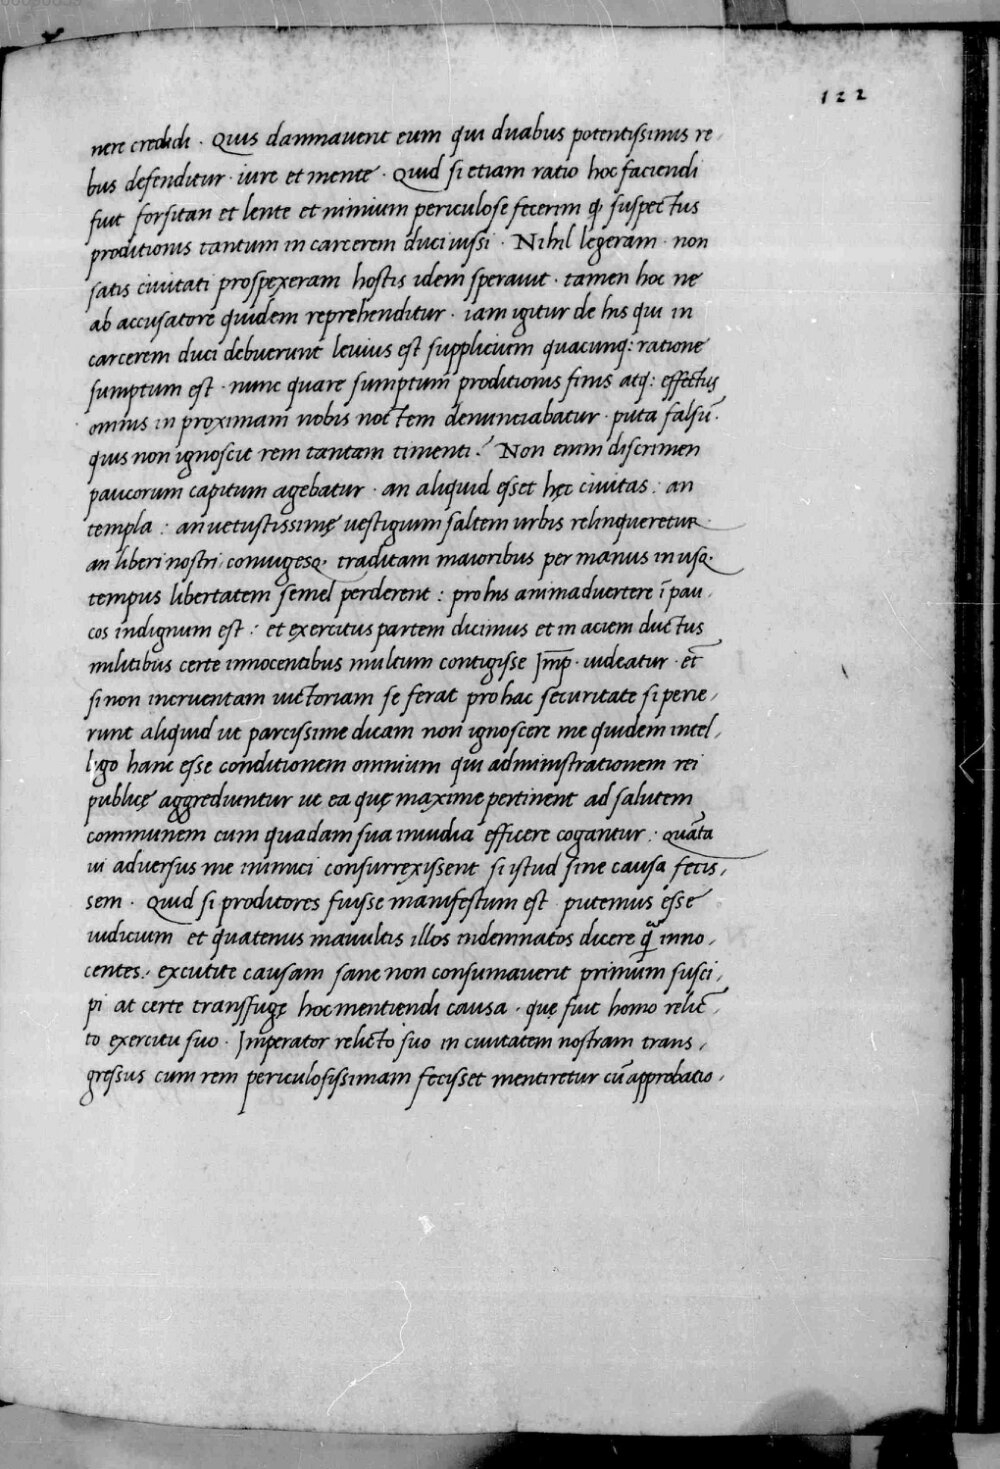 122
nere credidi · Quis damnaverit eum qui duabus potentissimis re
bus defenditur · iure et mente · Quid si etiam ratio hoc faciendi
fuit forsitan et lente et nimium periculose fecerim q̨ suspectus
proditionis tantum in carcerem duci iussi · Nihil legeram · non
satis civitati prospexeram hostis idem speravit · tamen hoc ne
ab accusatore quidem reprehenditur · iam igitur de his qui in
carcerem duci debuerunt levius est supplicium quacunq: ratione
sumptum est · nunc quare sumptum proditionis finis atq: effectus
omnis in proximam nobis noctem denunciabatur · puta falsū ·
quis non ignoscit rem tantam timenti? Non enim discrimen
paucorum capitum agebatur · an aliquid esset hęc civitas: an
templa: an vetustissimę vestigium saltem urbis relinqueretur
an liberi nostri coniugesq. traditam maioribus per manus in usq.
tempus libertatem semel perderent: pro his animadvertere ī pau
cos indignum est: et exercitus partem dicimus et in aciem ductus
militibus certe innocentibus multum contigisse Imp̄ · videatur · et
si non incruentam victoriam se ferat pro hac securitate si perie
runt aliquid ut parcissime dicam non ignoscere me quidem intel
ligo hanc esse conditionem omnium qui administrationem rei
publicę aggrediuntur ut ea quę maxime pertinent ad salutem
communem cum quadam sua invidia efficere cogantur · quāta
vi adversus me inimici consurrexissent si istud sine causa fecis
sem · Quid si proditores fuisse manifestum est putemus esse
iudicium et quatenus mavultis illos indemnatos dicere q̄ inno
centes: excutite causam sane non consumaverit primum susci
pi at certe transfugę hoc mentiendi causa · quę fuit homo relic
to exercitu suo · Imperator relicto suo in civitatem nostram trans
gressus cum rem periculosissimam fecisset mentiretur cū approbatio